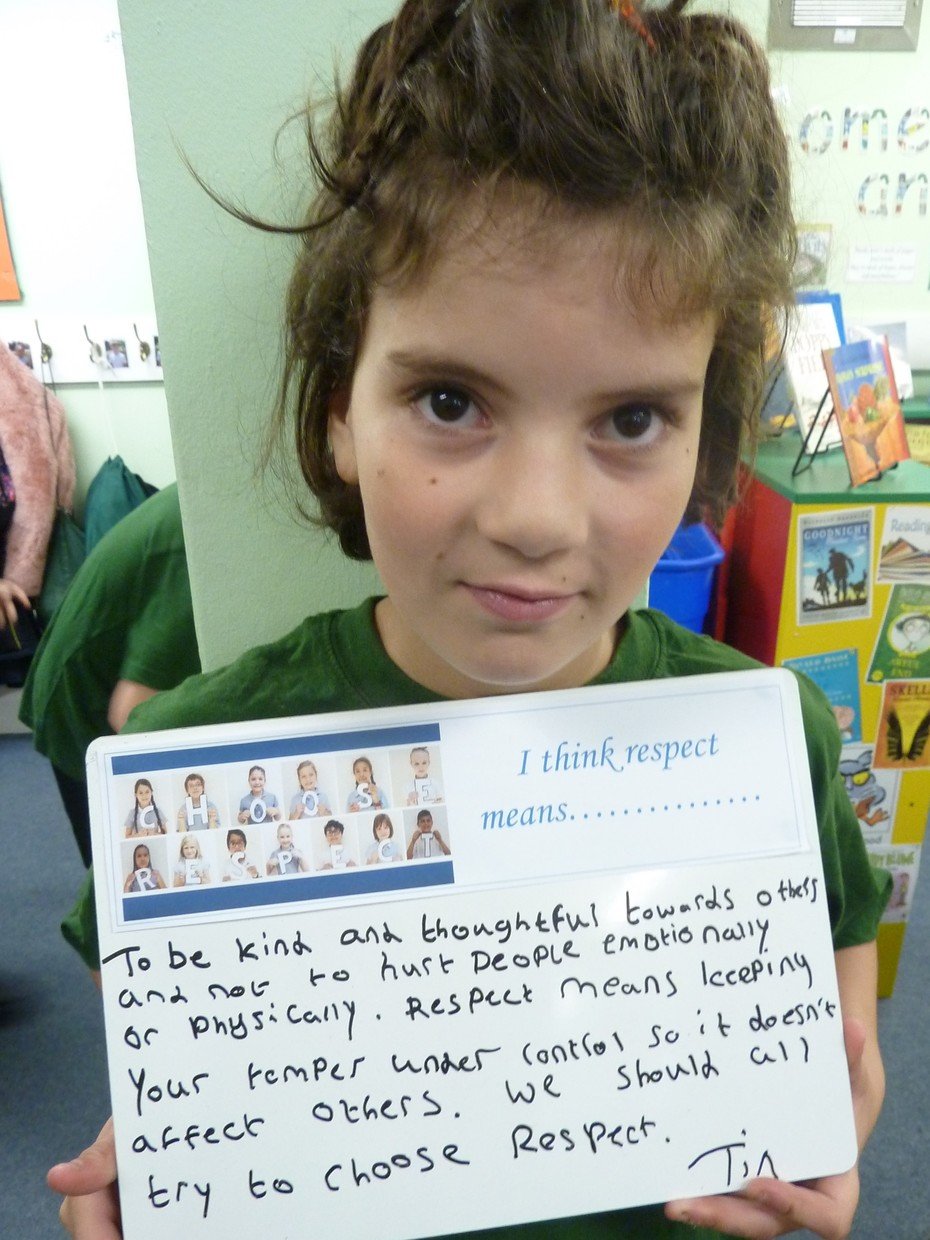 ome
an
GOODNIGHT
Reading
SKELL
CHOOSE
RESPECT
I think respect
means...............
To be kind and thoughtful towards others
and not to hurt People emotionally
or Physically. Respect means keeping
Your temper under control so it doesn't
affect others. We should all
try to choose Respect.